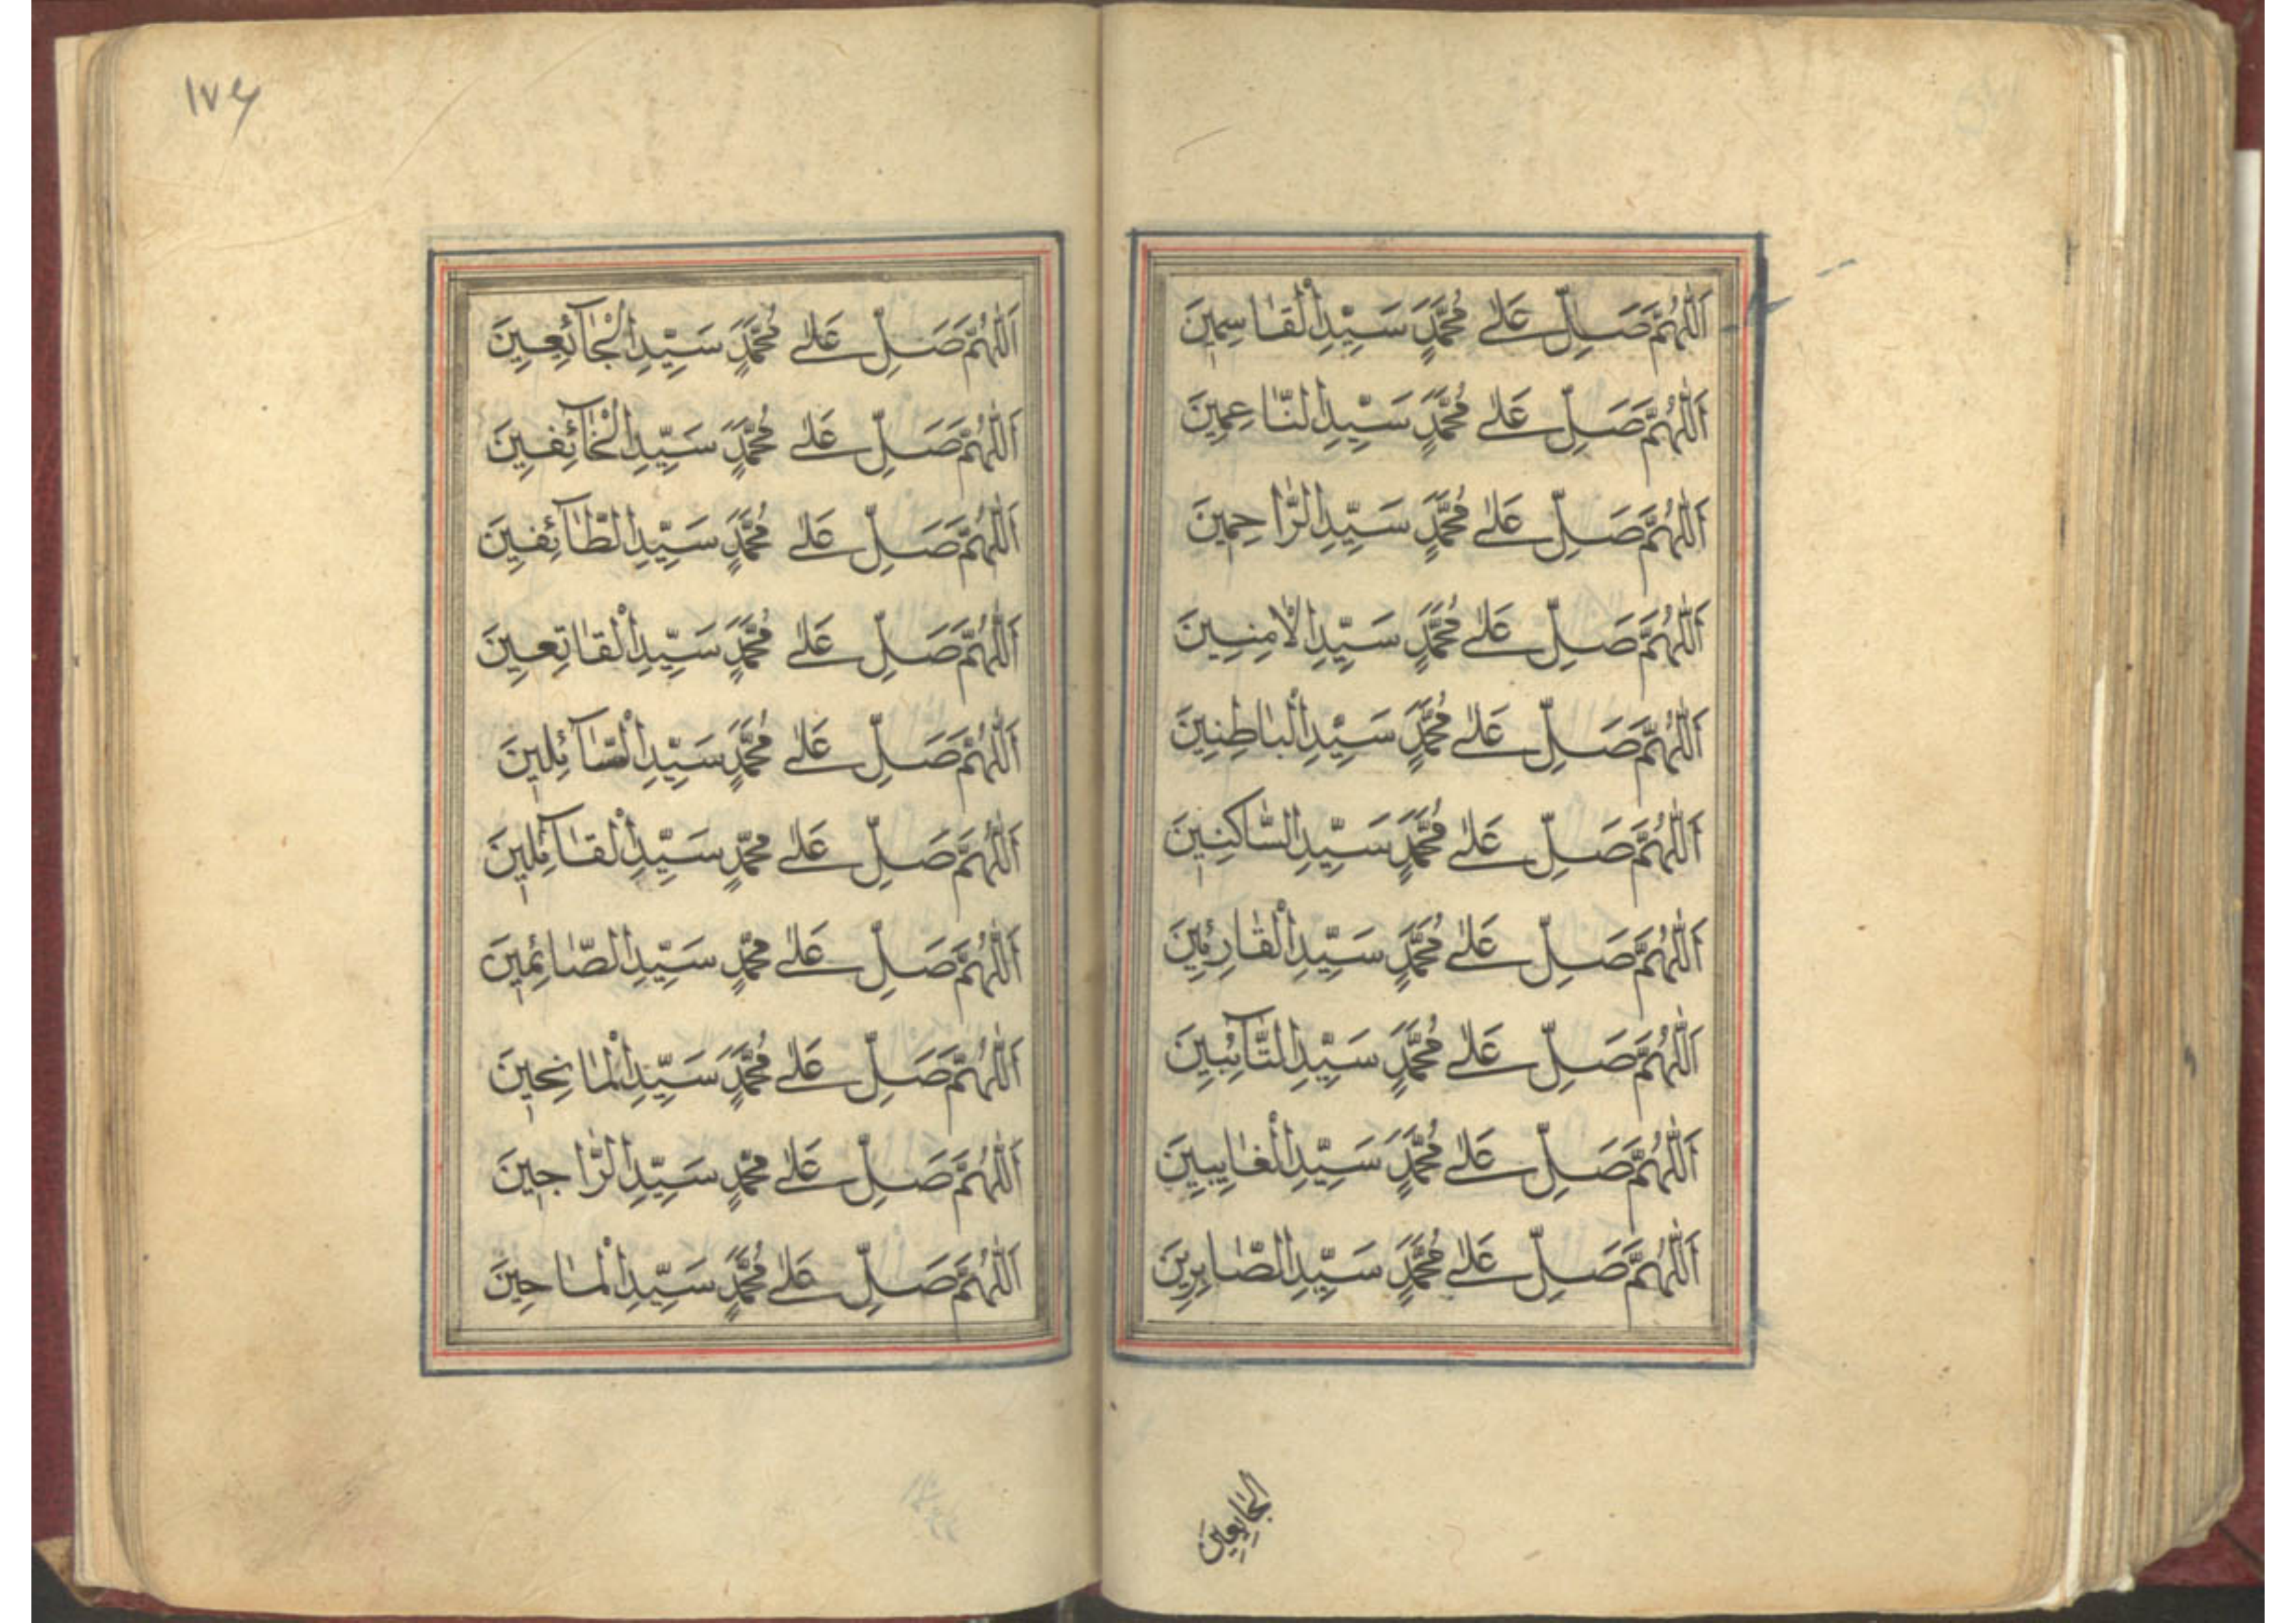 اَللّٰهُمَّ صَلِّ عَلٰى مُحَمَّدٍ سَيِّدِ الْقَاسِمِينَ
اَللّٰهُمَّ صَلِّ عَلٰى مُحَمَّدٍ سَيِّدِ النَّاعِمِينَ
اَللّٰهُمَّ صَلِّ عَلٰى مُحَمَّدٍ سَيِّدِ الرَّاحِمِينَ
اَللّٰهُمَّ صَلِّ عَلٰى مُحَمَّدٍ سَيِّدِ الْاٰمِنِينَ
اَللّٰهُمَّ صَلِّ عَلٰى مُحَمَّدٍ سَيِّدِ الْبَاطِنِينَ
اَللّٰهُمَّ صَلِّ عَلٰى مُحَمَّدٍ سَيِّدِ السَّاكِنِينَ
اَللّٰهُمَّ صَلِّ عَلٰى مُحَمَّدٍ سَيِّدِ الْقَارِئِينَ
اَللّٰهُمَّ صَلِّ عَلٰى مُحَمَّدٍ سَيِّدِ التَّآئِبِينَ
اَللّٰهُمَّ صَلِّ عَلٰى مُحَمَّدٍ سَيِّدِ الْغَايِبِينَ
اَللّٰهُمَّ صَلِّ عَلٰى مُحَمَّدٍ سَيِّدِ الصَّابِرِينَ
الجَايِعِينَ
١٧٤
اَللّٰهُمَّ صَلِّ عَلٰى مُحَمَّدٍ سَيِّدِ الْجَآئِعِينَ
اَللّٰهُمَّ صَلِّ عَلٰى مُحَمَّدٍ سَيِّدِ الْخَآئِفِينَ
اَللّٰهُمَّ صَلِّ عَلٰى مُحَمَّدٍ سَيِّدِ الطَّآئِفِينَ
اَللّٰهُمَّ صَلِّ عَلٰى مُحَمَّدٍ سَيِّدِ الْقَاتِعِينَ
اَللّٰهُمَّ صَلِّ عَلٰى مُحَمَّدٍ سَيِّدِ السَّآئِلِينَ
اَللّٰهُمَّ صَلِّ عَلٰى مُحَمَّدٍ سَيِّدِ الْقَآئِلِينَ
اَللّٰهُمَّ صَلِّ عَلٰى مُحَمَّدٍ سَيِّدِ الصَّائِمِينَ
اَللّٰهُمَّ صَلِّ عَلٰى مُحَمَّدٍ سَيِّدِ الْمَانِحِينَ
اَللّٰهُمَّ صَلِّ عَلٰى مُحَمَّدٍ سَيِّدِ الرَّاجِينَ
اَللّٰهُمَّ صَلِّ عَلٰى مُحَمَّدٍ سَيِّدِ الْمَاحِينَ